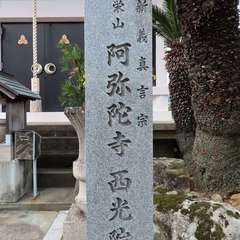 新義真言宗
栄山
阿弥陀寺 西光院